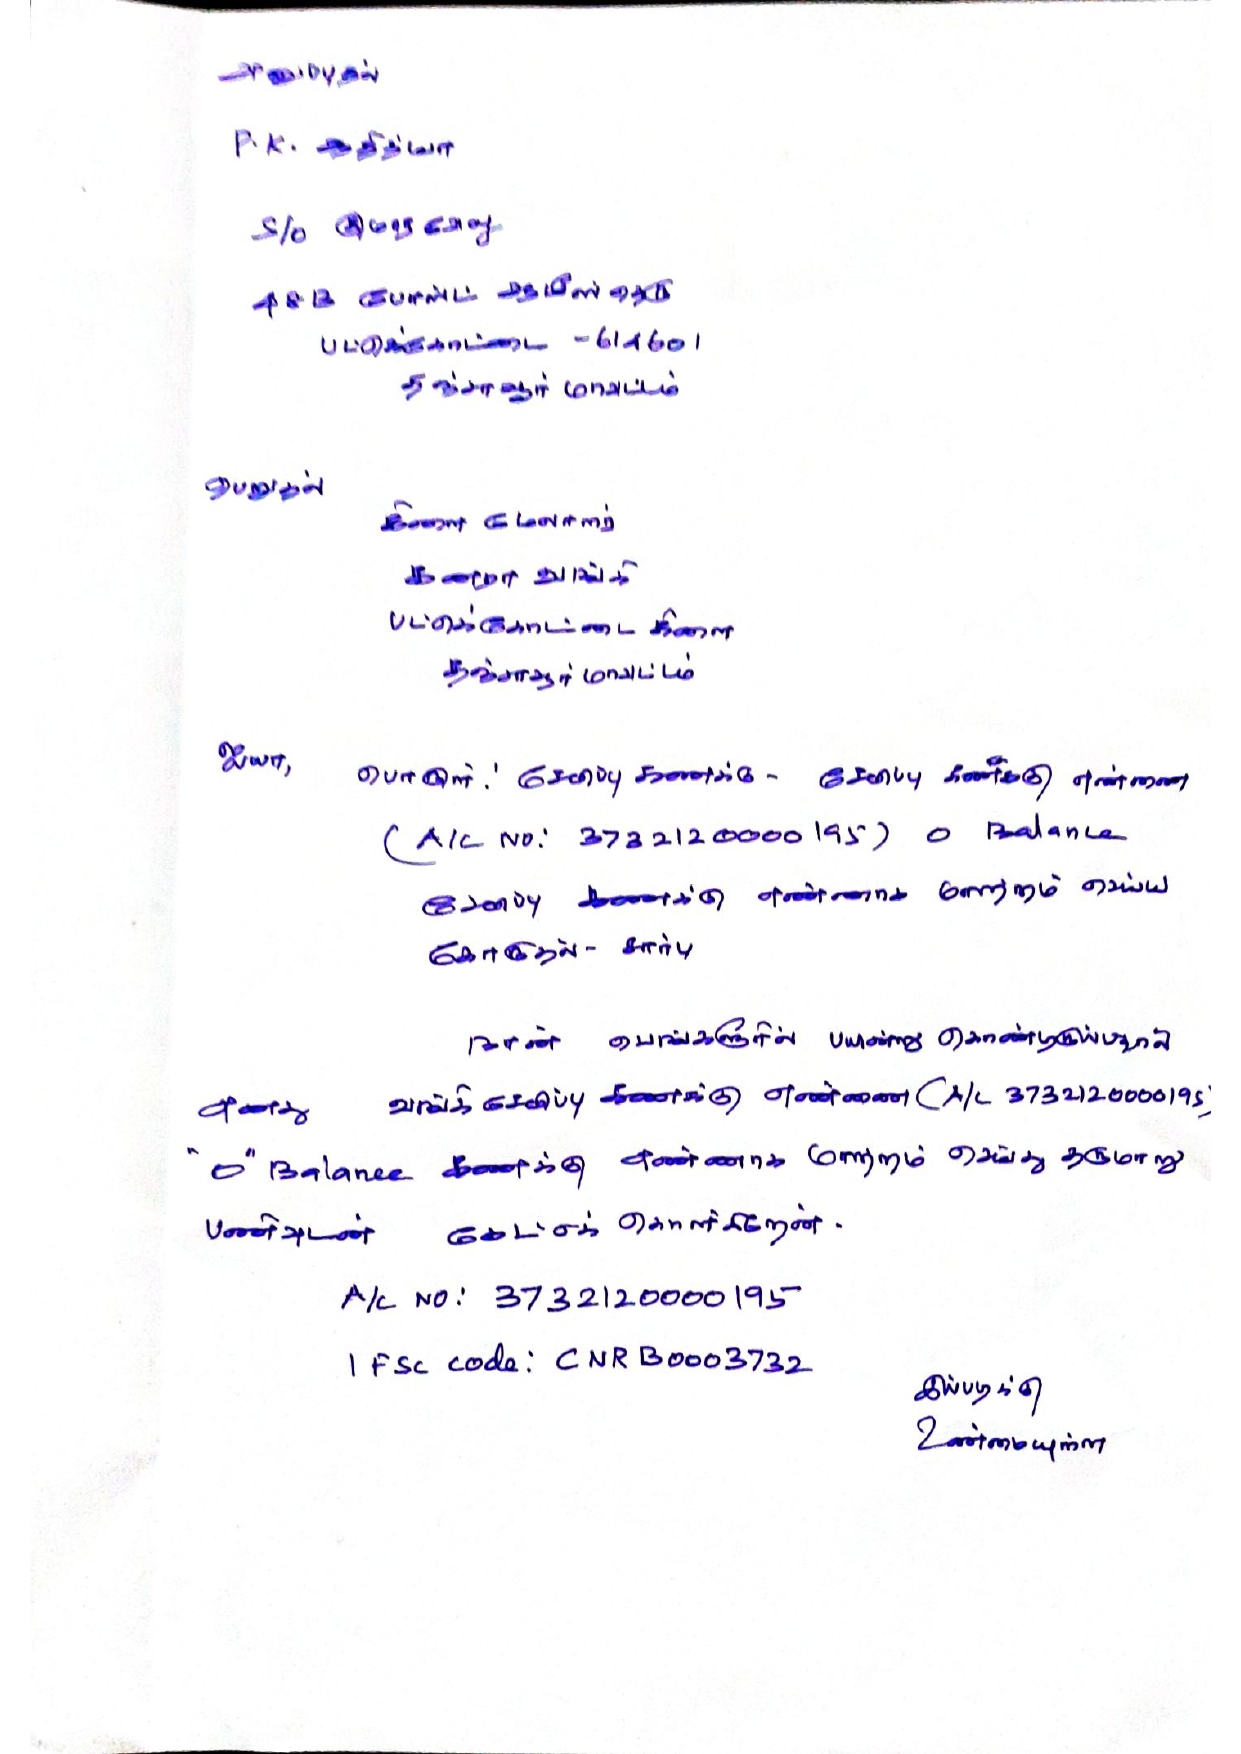 அனுப்புதல்
P.K. ஆதித்யா
S/O குமரவேலு
48B போஸ்ட் ஆபீஸ் தெரு
பட்டுக்கோட்டை - 614601
தஞ்சாவூர் மாவட்டம்
பெறுதல்
கிளை மேலாளர்
கனரா வங்கி
பட்டுக்கோட்டை கிளை
தஞ்சாவூர் மாவட்டம்
ஐயா,
பொருள்: சேமிப்பு கணக்கு - சேமிப்பு கணக்கு எண்ணை
(A/C NO: 3732120000195) 0 Balance
சேமிப்பு கணக்கு எண்ணாக மாற்றம் செய்ய
கோருதல் - சார்பு
நான் பெங்களூரில் பயின்று கொண்டிருப்பதால்
எனது வங்கி சேமிப்பு கணக்கு எண்ணை (A/C 3732120000195)
"0" Balance கணக்கு எண்ணாக மாற்றம் செய்து தருமாறு
பணிவுடன் கேட்டுக் கொள்கிறேன்.
A/C NO: 3732120000195
IFSC code: CNRB0003732
இப்படிக்கு
உண்மையுள்ள